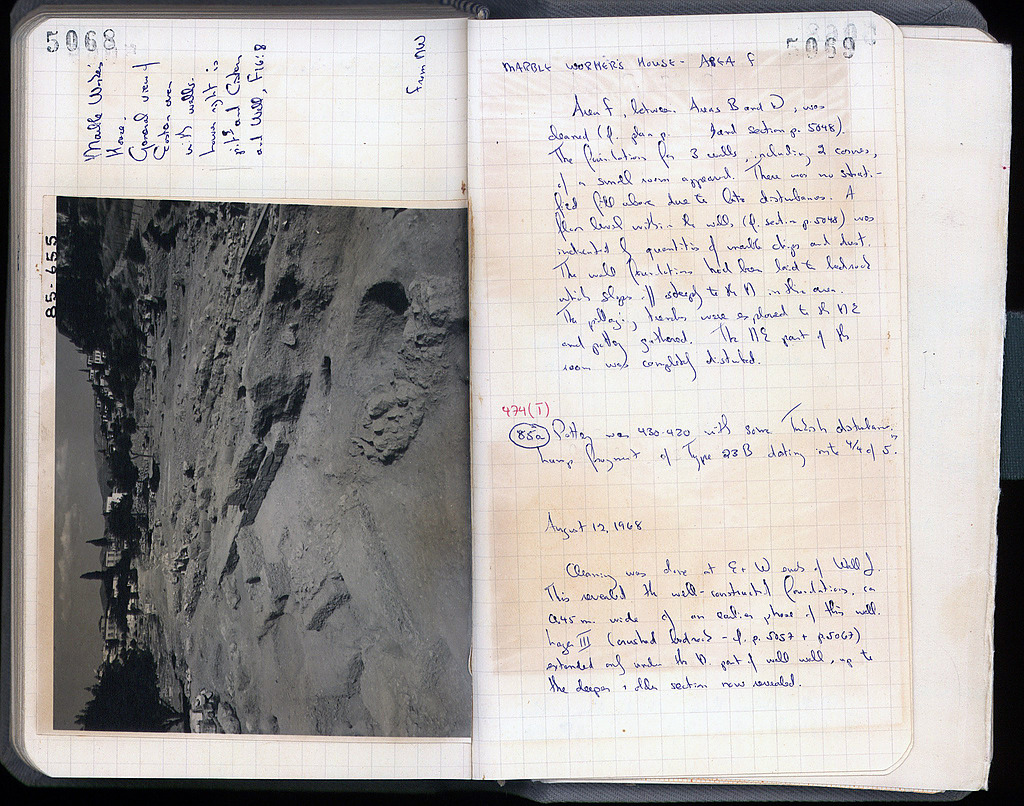 5068
Marble Worker's
House.
General view of
Eastern area
with walls.
Lower right is
pit and Cistern
and Well, F16:8
From NW
85-655
5069
MARBLE WORKER'S HOUSE - AREA F
Area F, between Areas B and D, was
cleaned (cf. plan p. and section p. 5048).
The foundations for 3 walls, including 2 corners,
of a small room appeared. There was no strati-
fied fill above due to late disturbances. A
floor level within the walls (cf. section p. 5048) was
indicated by quantities of marble chips and dust.
The wall foundations had been laid to bedrock
which slopes off steeply to the N in this area.
The pillaging trenches were explored to the NE
and pottery gathered. The NE part of the
room was completely disturbed.
474(T)
85a Pottery was 430-420 with some Turkish disturbance.
Lamp fragment of Type 23B dating into 4/4 of 5"
August 12, 1968
Cleaning was done at E + W ends of Wall J.
This revealed the well-constructed foundations, ca
0.45 m. wide of an earlier phase of this wall.
Layer III (crushed bedrock - cf. p. 5057 + p. 5067)
extended only under the N part of wall, up to
the deeper + older section now revealed.